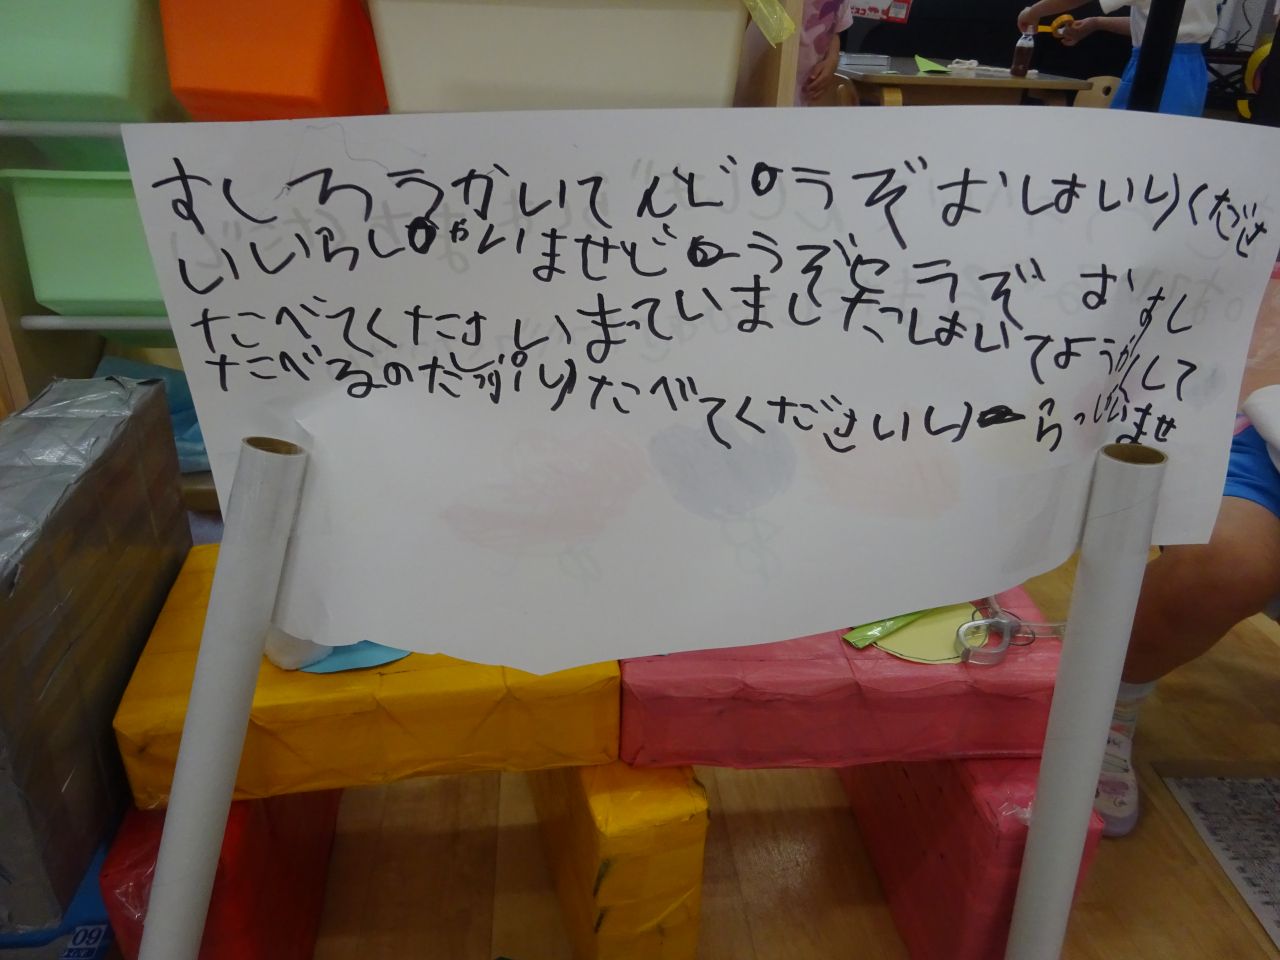 すしろうかいてんどうぞおしはいりくださ
いいらしゃいませどーうぞどうぞ おすし
たこべてくたさいまっていましたっしはいてようがくして
たこべるのだっぷりたべてくださいりーらっしゃいませ
60